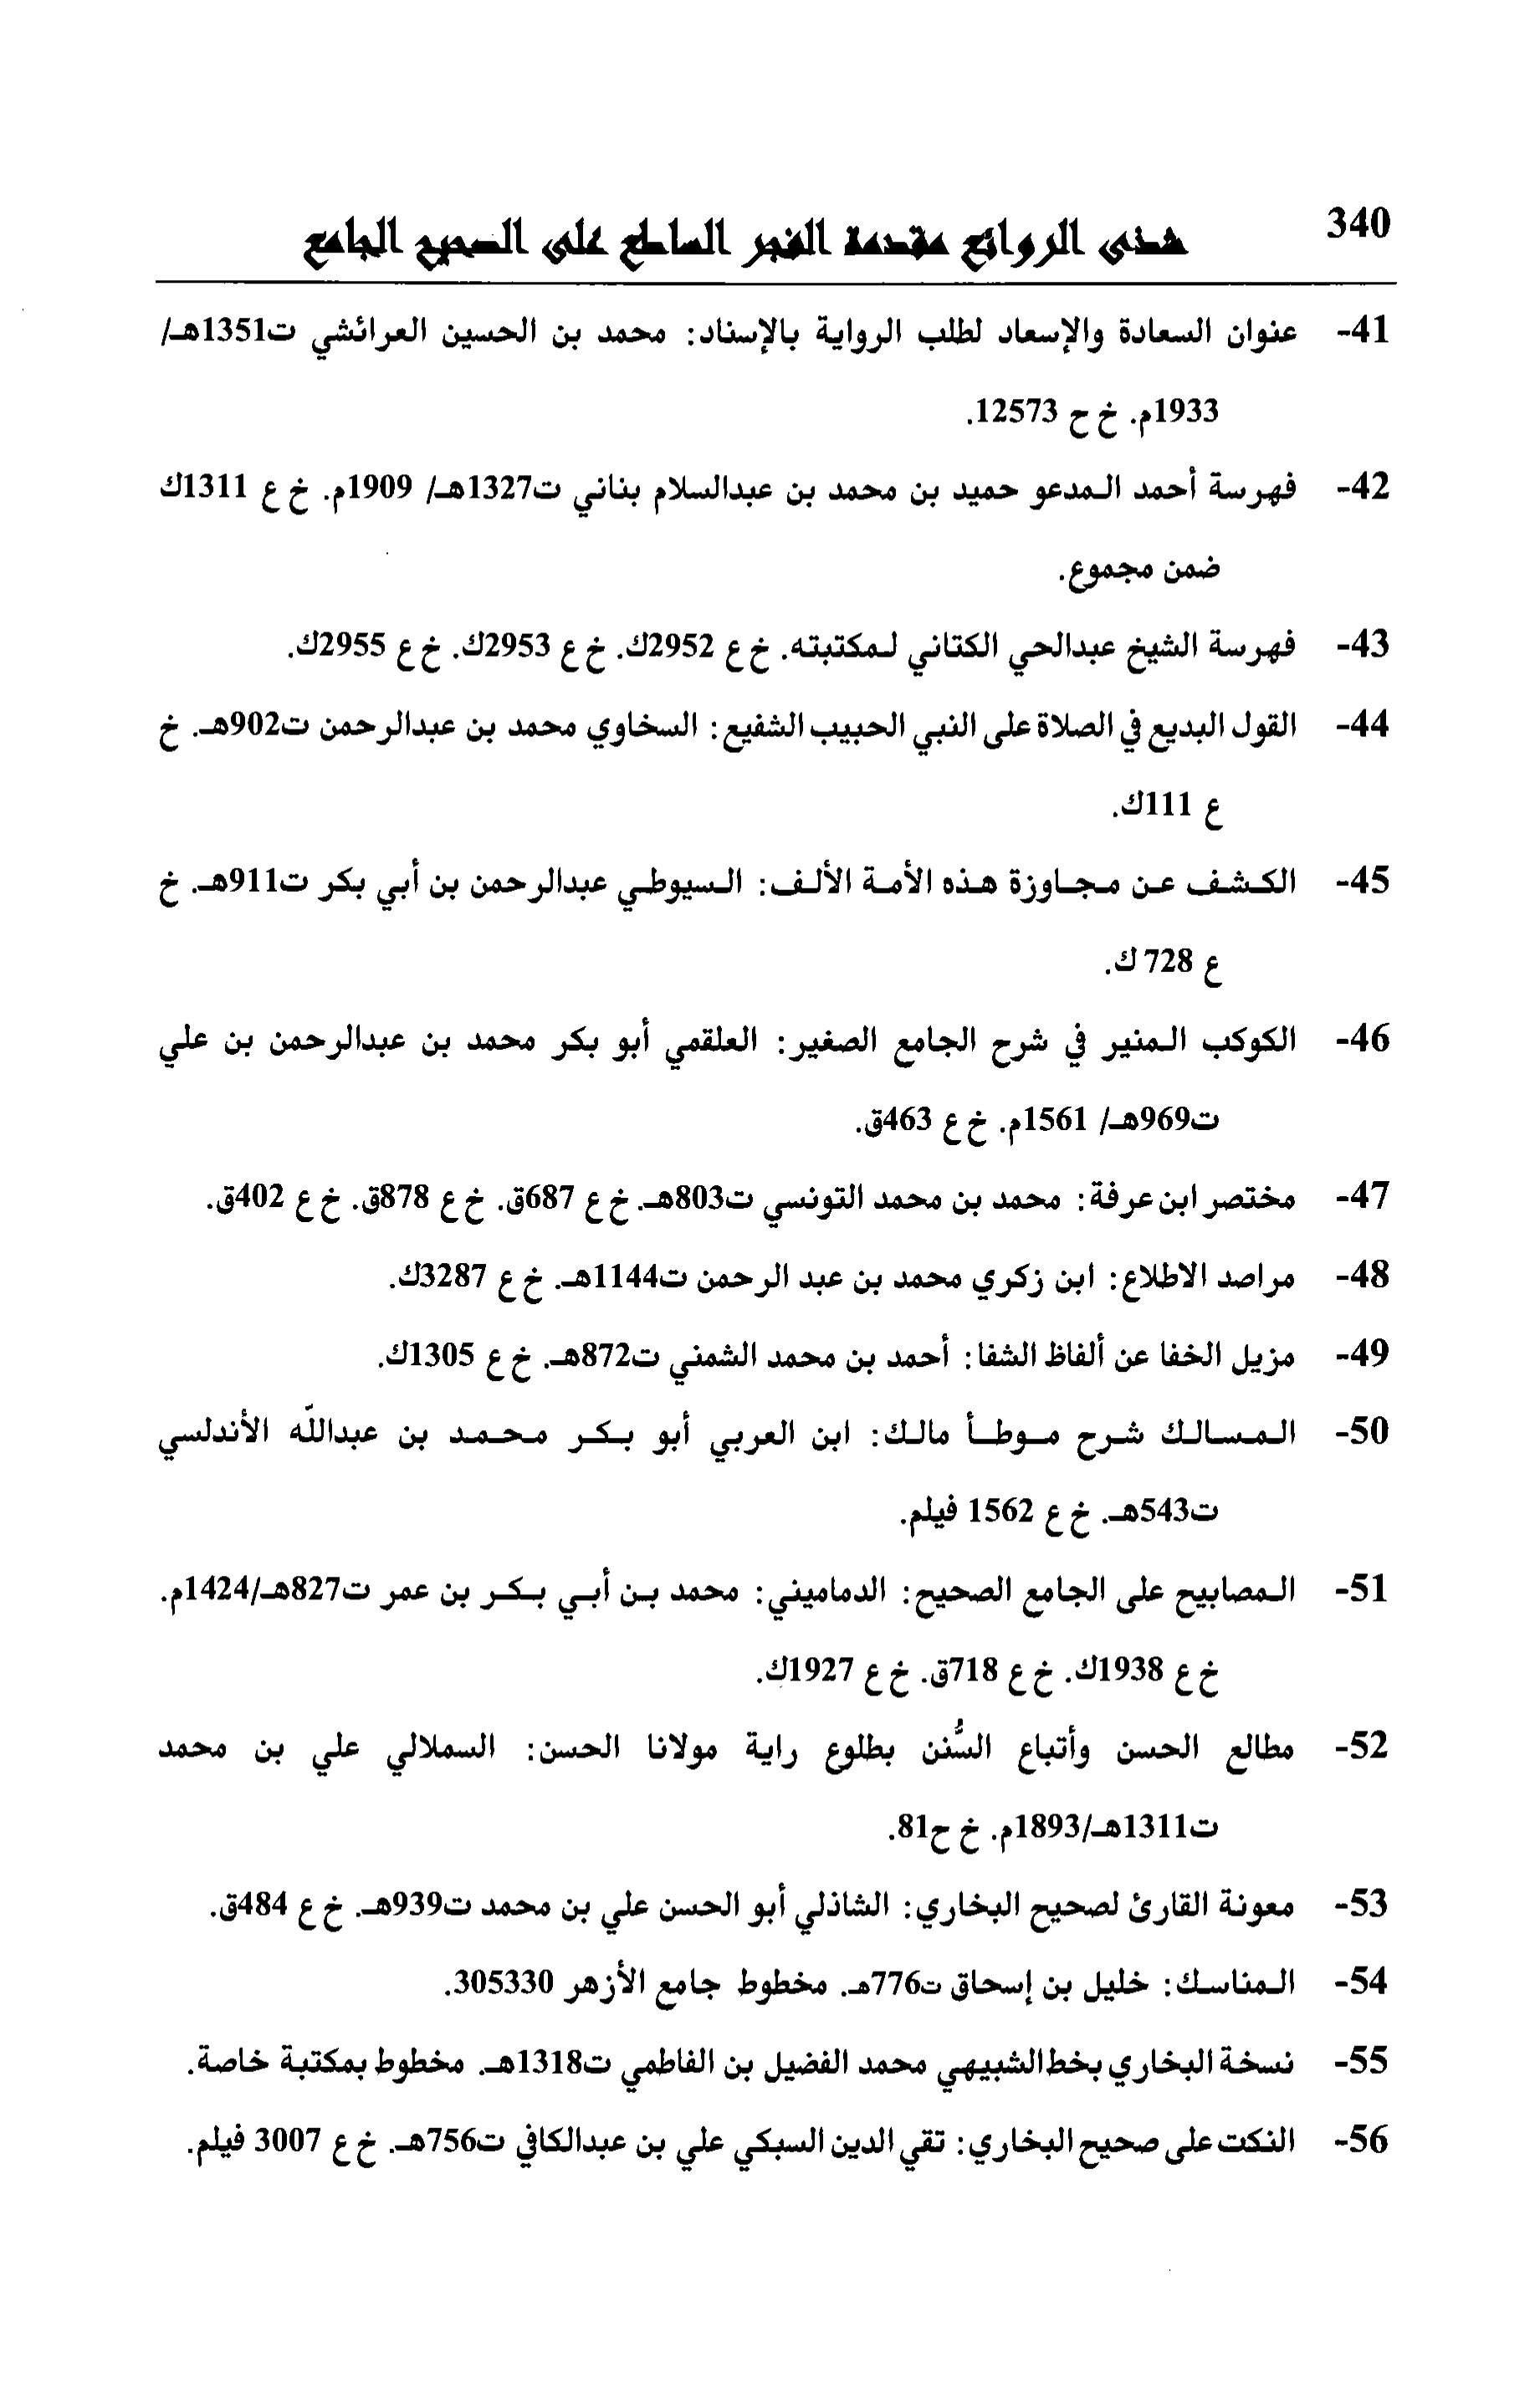 340
شذى الروائح مقدمة الفجر الساطع على الصحيح الجامع
41- عنوان السعادة والإسعاد لطلب الرواية بالإسناد: محمد بن الحسين العرائشي ت1351هـ/
1933م. خ ح 12573.
42- فهرسة أحمد المدعو حميد بن محمد بن عبدالسلام بناني ت1327هـ/ 1909م. خ ع 1311ك
ضمن مجموع.
43- فهرسة الشيخ عبدالحي الكتاني لمكتبته. خ ع 2952ك. خ ع 2953ك. خ ع 2955ك.
44- القول البديع في الصلاة على النبي الحبيب الشفيع: السخاوي محمد بن عبدالرحمن ت902هـ. خ
ع 111ك.
45- الكشف عن مجاوزة هذه الأمة الألف: السيوطي عبدالرحمن بن أبي بكر ت911هـ. خ
ع 728 ك.
46- الكوكب المنير في شرح الجامع الصغير: العلقمي أبو بكر محمد بن عبدالرحمن بن علي
ت969هـ/ 1561م. خ ع 463ق.
47- مختصر ابن عرفة: محمد بن محمد التونسي ت803هـ. خ ع 687ق. خ ع 878ق. خ ع 402ق.
48- مراصد الاطلاع: ابن زكري محمد بن عبد الرحمن ت1144هـ. خ ع 3287ك.
49- مزيل الخفا عن ألفاظ الشفا: أحمد بن محمد الشمني ت872هـ. خ ع 1305ك.
50- المسالك شرح موطأ مالك: ابن العربي أبو بكر محمد بن عبدالله الأندلسي
ت543هـ. خ ع 1562 فيلم.
51- المصابيح على الجامع الصحيح: الدماميني: محمد بن أبي بكر بن عمر ت827هـ/1424م.
خ ع 1938ك. خ ع 718ق. خ ع 1927ك.
52- مطالع الحسن وأتباع السُّنن بطلوع راية مولانا الحسن: السملالي علي بن محمد
ت1311هـ/1893م. خ ح81.
53- معونة القارئ لصحيح البخاري: الشاذلي أبو الحسن علي بن محمد ت939هـ. خ ع 484ق.
54- المناسك: خليل بن إسحاق ت776هـ. مخطوط جامع الأزهر 305330.
55- نسخة البخاري بخط الشبيهي محمد الفضيل بن الفاطمي ت1318هـ. مخطوط بمكتبة خاصة.
56- النكت على صحيح البخاري: تقي الدين السبكي علي بن عبدالكافي ت756هـ. خ ع 3007 فيلم.